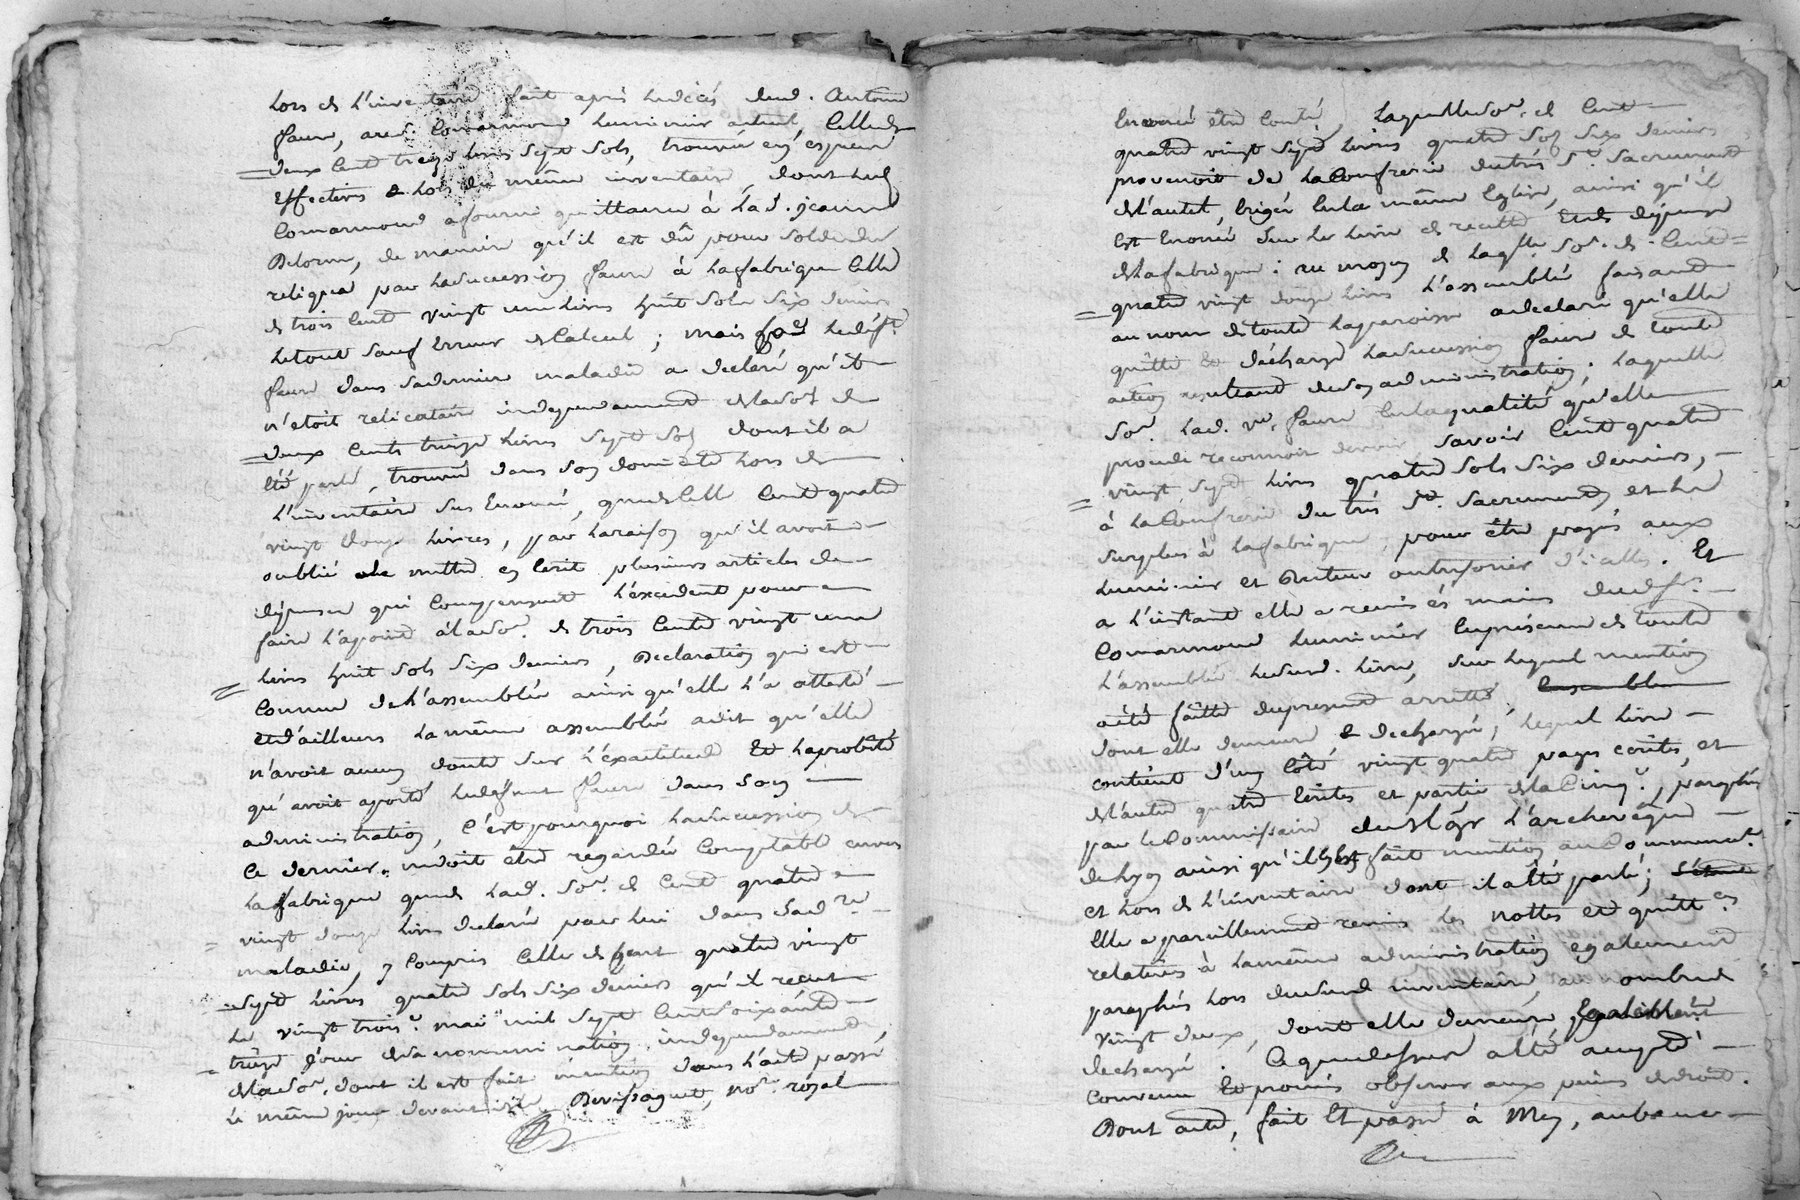 hors de l'inventaire fait après ledécés dud. Antoine
faure, aud. Comarmond luminier actuel, Celle de
deux Cent treize livres sept sols, trouvée en espèces
Effectives & hors du même inventaire, dont led.
Comarmond a fourni quittance à lad. jeanne
Delorme, de maniere qu'il est dû pour solde du
reliquat par lasuccession faure à lafabrique Celle
de trois Cent vingt une livres huit sols six deniers
letout sauf erreur deCalcul ; mais led. deft.
faure dans saderniere maladie a declaré qu'il
n'etoit relicataire independamment deladOe. de
deux Cents treize livres sept sols dont il a
été parlé, trouvée dans son domicile hors de
l'inventaire sus Enoncé, quedeCelle Cent quatre
vingt douze livres, par laraison qu'il avoit
oublié de mettre en Ecrit plusieurs articles de
dépense qui Compensent l'éxcedent pour
faire l'apoint àlasoe. de trois Cent vingt une
livres huit sols six deniers, Declaration qui est
Connue de l'assemblée ainsi qu'elle l'a attesté
etd'ailleurs la même assemblée adit qu'elle
n'avoit aucun doute sur l'éxactitude Et laprobité
qu'avoit aporté ledeffunt faure dans son
administration, C'est pourquoi lasuccession de
Ce dernier nedoit être regardée Comptable envers
lafabrique quede lad. soe. de Cent quatre
vingt douze livres declarée par lui dans sad re
maladie, y Compris Celle de Cent quatre vingt
sept livres quatre sols six deniers qu'il reçut
le vingt trois e. mai mil sept Cent soixante
treize jour desanomination, independamment
delasoe. dont il est fait mention dans l'acte passé
le même jour devant Devissaguet, nore. royal
Enoncé être Conté, Laquellesoe. de Cent
quatre vingt sept livres quatre sols six deniers
provenoit de laConfrerie dutrès St. Sacrement
del'autel, Erigée Enla même Eglise, ainsi qu'il
Est Enoncé sur le livre de recette Etde dépense
delafabrique : au moyen de laqlle. soe. de Cent
quatre vingt douze livres l'assemblée faisant
au nom detoute laparoisse adeclaré qu'elle
quitte Et décharge lasuccession faure de toute
action resultant deson administration ; laquelle
soe. lad. ve. faure Enlaqualité qu'elle
procede reconnoit devoir savoir Cent quatre
vingt sept livres quatre sols six deniers,
à laConfrerie du très St. Sacrement, et le
surplus à lafabrique, pour être payés aux
luminier et Recteur outresorier d'icelles. Et
a l'instant elle a remis ès mains dudsr.
Comarmond luminier Enprésence de toute
l'assemblée lesusd. livre, sur lequel mention
aété faitte dupresent arretté,
dont elle demeure dechargée, lequel livre
contient d'un Côté vingt quatre pages ecrites, et
del'autre quatre Ecrites et partie delaCinqe., paraphées
par leCommissaire demslogr l'archevêque
de Lyon ainsi qu'il est fait mention auCommencet.
et hors de l'inventaire dont il aété parlé ;
Elle a pareillement remis les nottes et quittces
relatives à lamême administration egalement
paraphés hors dususd inventaire, au nombre
vingt deux, dont elle demeure
dechargée. Ce quedessus a été accepté
convenu Et promis observer aux peines dedroit.
Dont acte, fait Et passé à Mey, aubanc